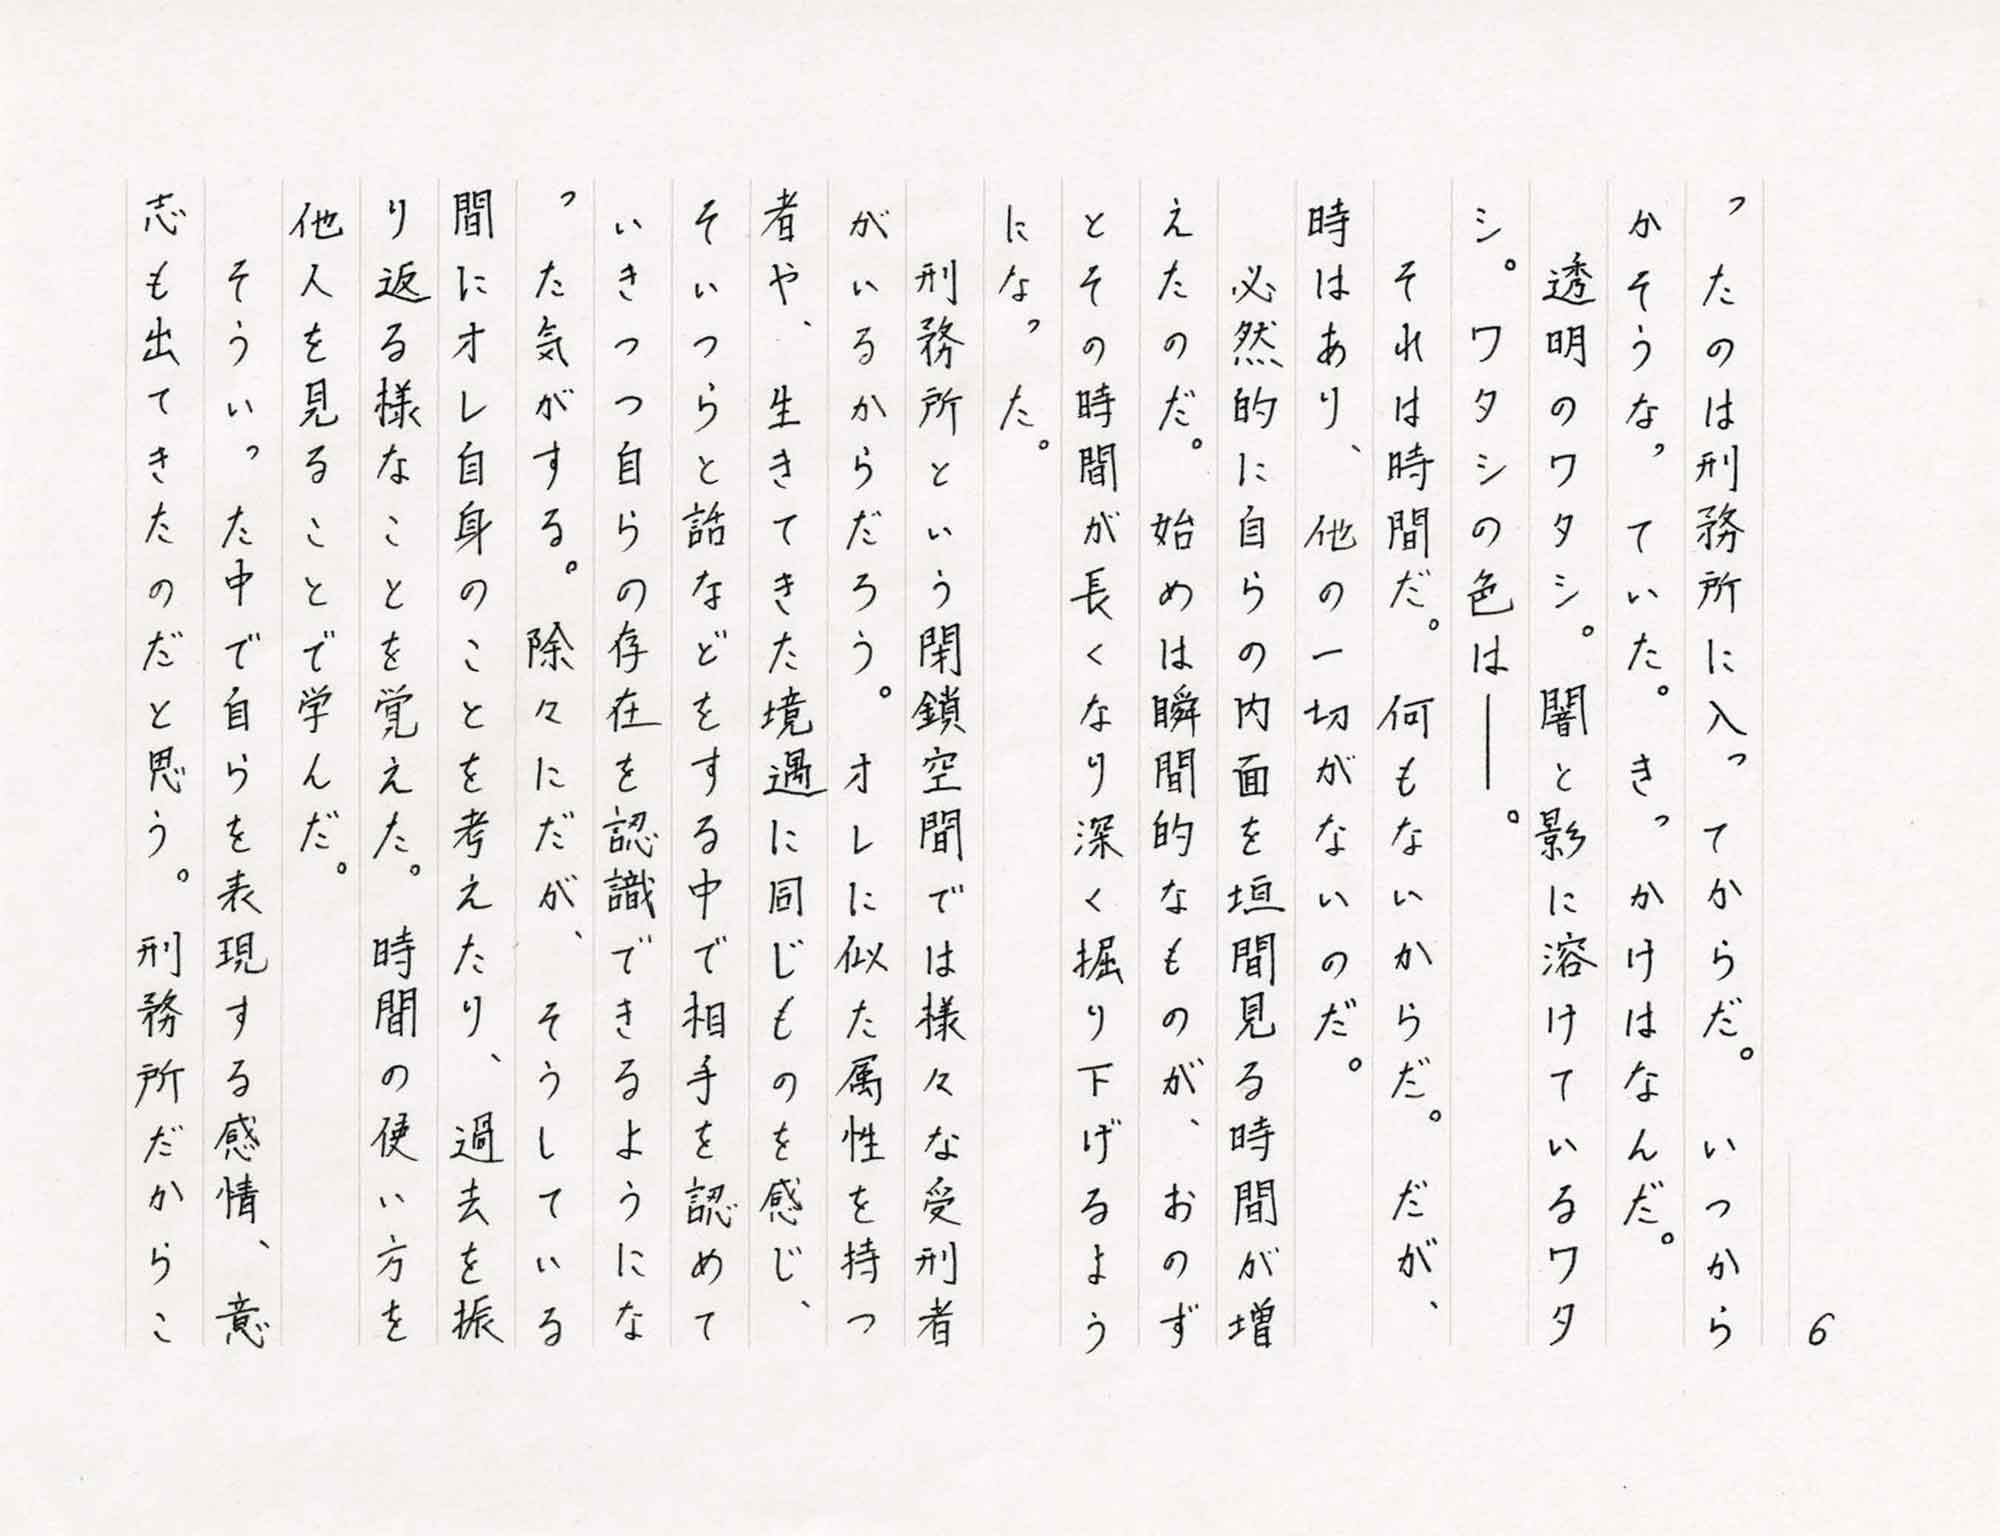 6
ったのは刑務所に入ってからだ。いつから
かそうなっていた。きっかけはなんだ。
透明のワタシ。闇と影に溶けているワタ
シ。ワタシの色は――。
それは時間だ。何もないからだ。だが、
時はあり、他の一切がないのだ。
必然的に自らの内面を垣間見る時間が増
えたのだ。始めは瞬間的なものが、おのず
とその時間が長くなり深く掘り下げるよう
になった。
刑務所という閉鎖空間では様々な受刑者
がいるからだろう。オレに似た属性を持つ
者や、生きてきた境遇に同じものを感じ、
そいつらと話などをする中で相手を認めて
いきつつ自らの存在を認識できるようにな
った気がする。除々にだが、そうしている
間にオレ自身のことを考えたり、過去を振
り返る様なことを覚えた。時間の使い方を
他人を見ることで学んだ。
そういった中で自らを表現する感情、意
志も出てきたのだと思う。刑務所だからこ